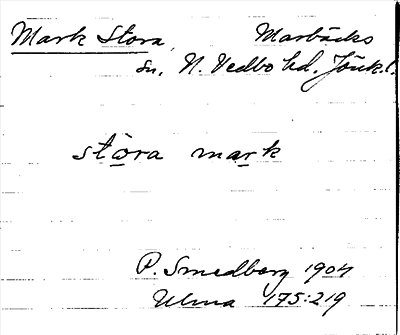 Mark Stora, Marbäcks
sn, N. Vedbo hd. Jönk.l.
stora mark
P. Smedberg 1904
Ulma 175:219